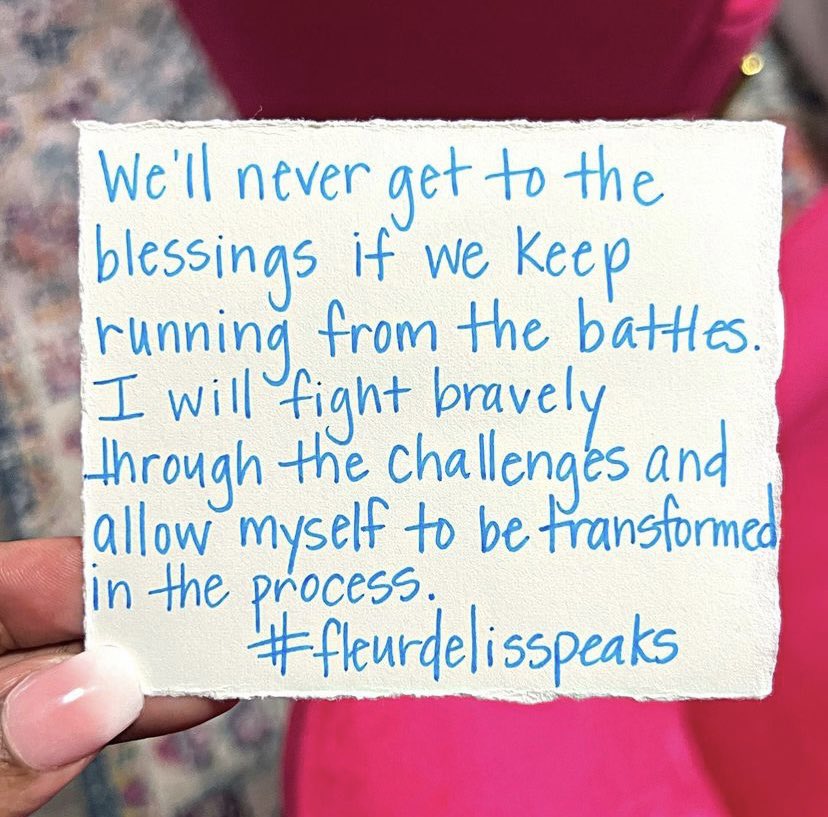 We'll never get to the
blessings if we keep
running from the battles.
I will fight bravely
through the challenges and
allow myself to be transformed
in the process.
#fleurdelisspeaks